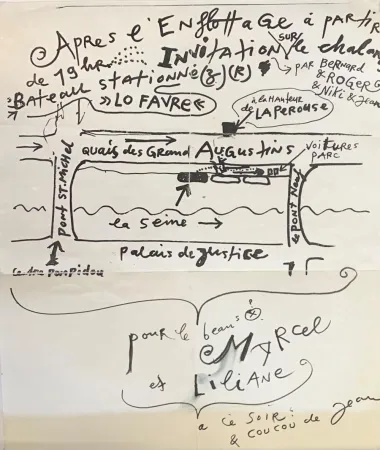 Après l'Enflottage à partir
de 19 hr INVITATION SUR le chaland
Bateau stationné → par BERNARD
»LO FAVRE« & ROGER G
& Niki & Jean
à la Hauteur
de LAPEROUSE
Quais des Grand Augustins
VOITURES
PARC
Pont St. Michel
le Pont Neuf
la Seine →
Palais de Justice
Pompidou
pour le beaus
Marcel
et Liliane
a ce SOIR!
& COUCOU de Jean